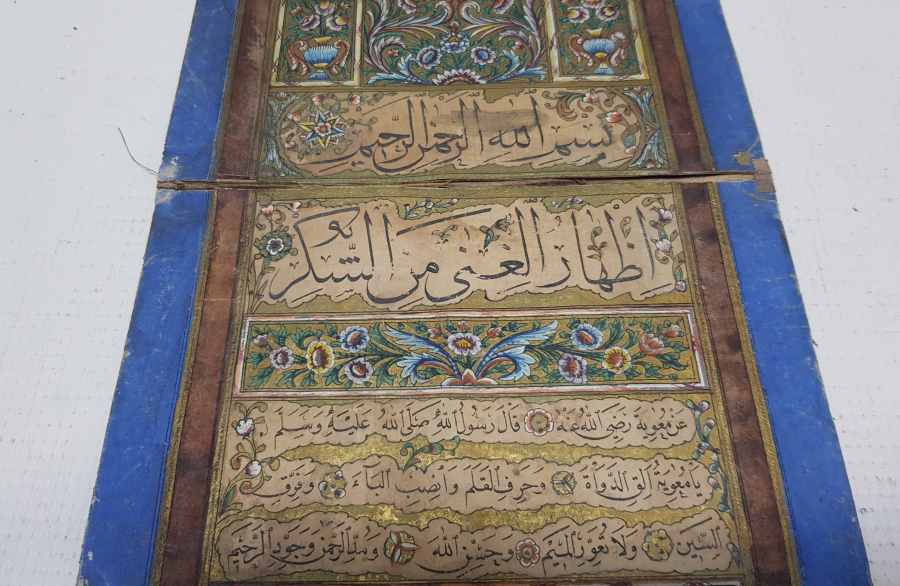 بسم الله الرحمن الرحيم
اظهار الغنى من الشكر
عن معوية رضي الله عنه قال رسول الله صلى الله عليه وسلم
يا معوية الق الدواة وحرف القلم وانصب الباء وفرق
السين ولا تعور الميم وحسن الله ومد الرحمن وجود الرحيم